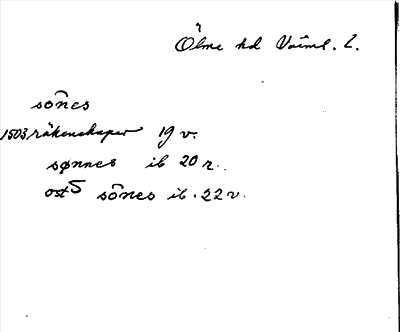 Ölme hd Värml. L.
sônes
1503 räkenskaper 19 v.
sønnes ib 20 r.
ost S sônes ib. 22 v.